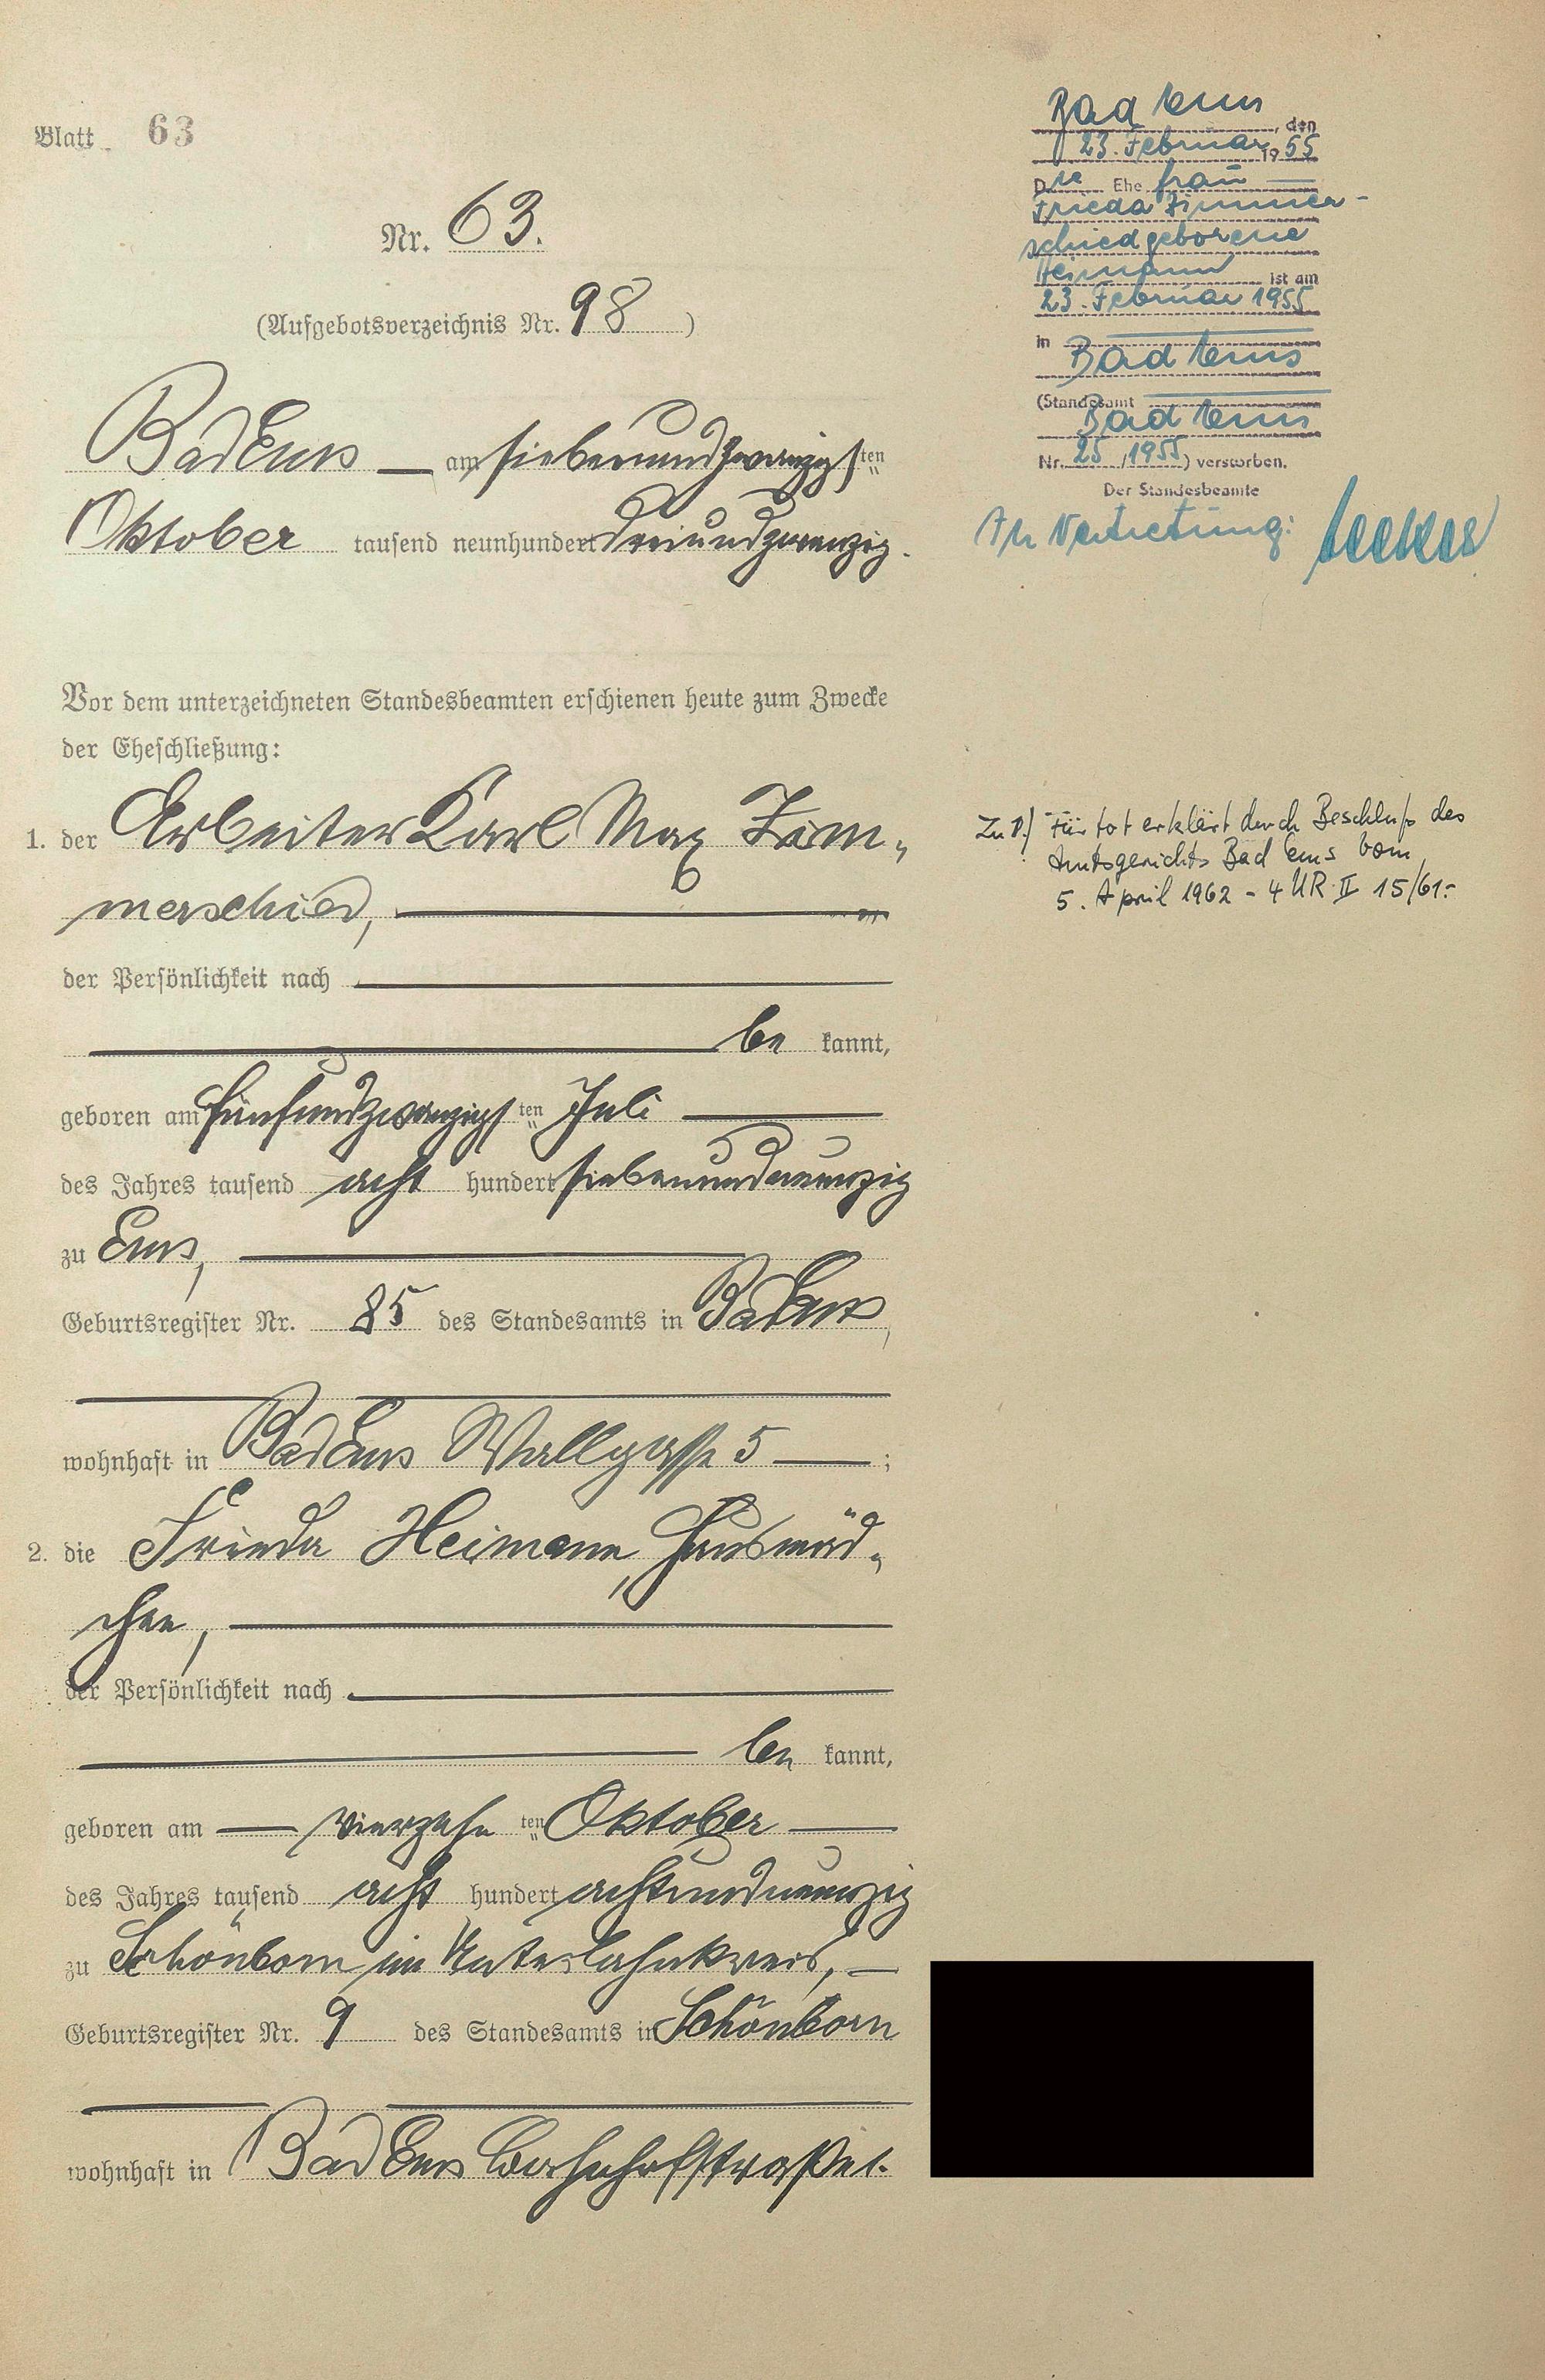 Blatt 63
Nr. 63.
(Aufgebotsverzeichnis Nr. 98)
Bad Ems — am siebenundzwanzigsten
Oktober tausend neunhundert dreiundzwanzig.
Vor dem unterzeichneten Standesbeamten erschienen heute zum Zwecke
der Eheschließung:
1. der Arbeiter Karl Max Zim-
merschied,
der Persönlichkeit nach
be kannt,
geboren am fünfundzwanzigsten Juli
des Jahres tausend acht hundert siebenundneunzig
zu Ems,
Geburtsregister Nr. 85 des Standesamts in Bad Ems,
wohnhaft in Bad Ems Wallgasse 5 — ;
2. die Frieda Heimann, Hausmäd-
chen,
der Persönlichkeit nach
be kannt,
geboren am — vierzehnten Oktober —
des Jahres tausend acht hundert achtundneunzig
zu Schönborn im Unterlahnkreis, —
Geburtsregister Nr. 9 des Standesamts in Schönborn
wohnhaft in Bad Ems Bahnhofstraße 1.
Bad Ems, den
23. Februar 1955
Die Ehe frau —
Frieda Zimmer-
schied geborene
Heimann ist am
23. Februar 1955
in
Bad Ems
(Standesamt
Bad Ems
Nr. 25/1955) verstorben.
Der Standesbeamte
In Vertretung:
Zu 1.) Für tot erklärt durch Beschluß des
Amtsgerichts Bad Ems vom
5. April 1962 - 4 UR II 15/61-